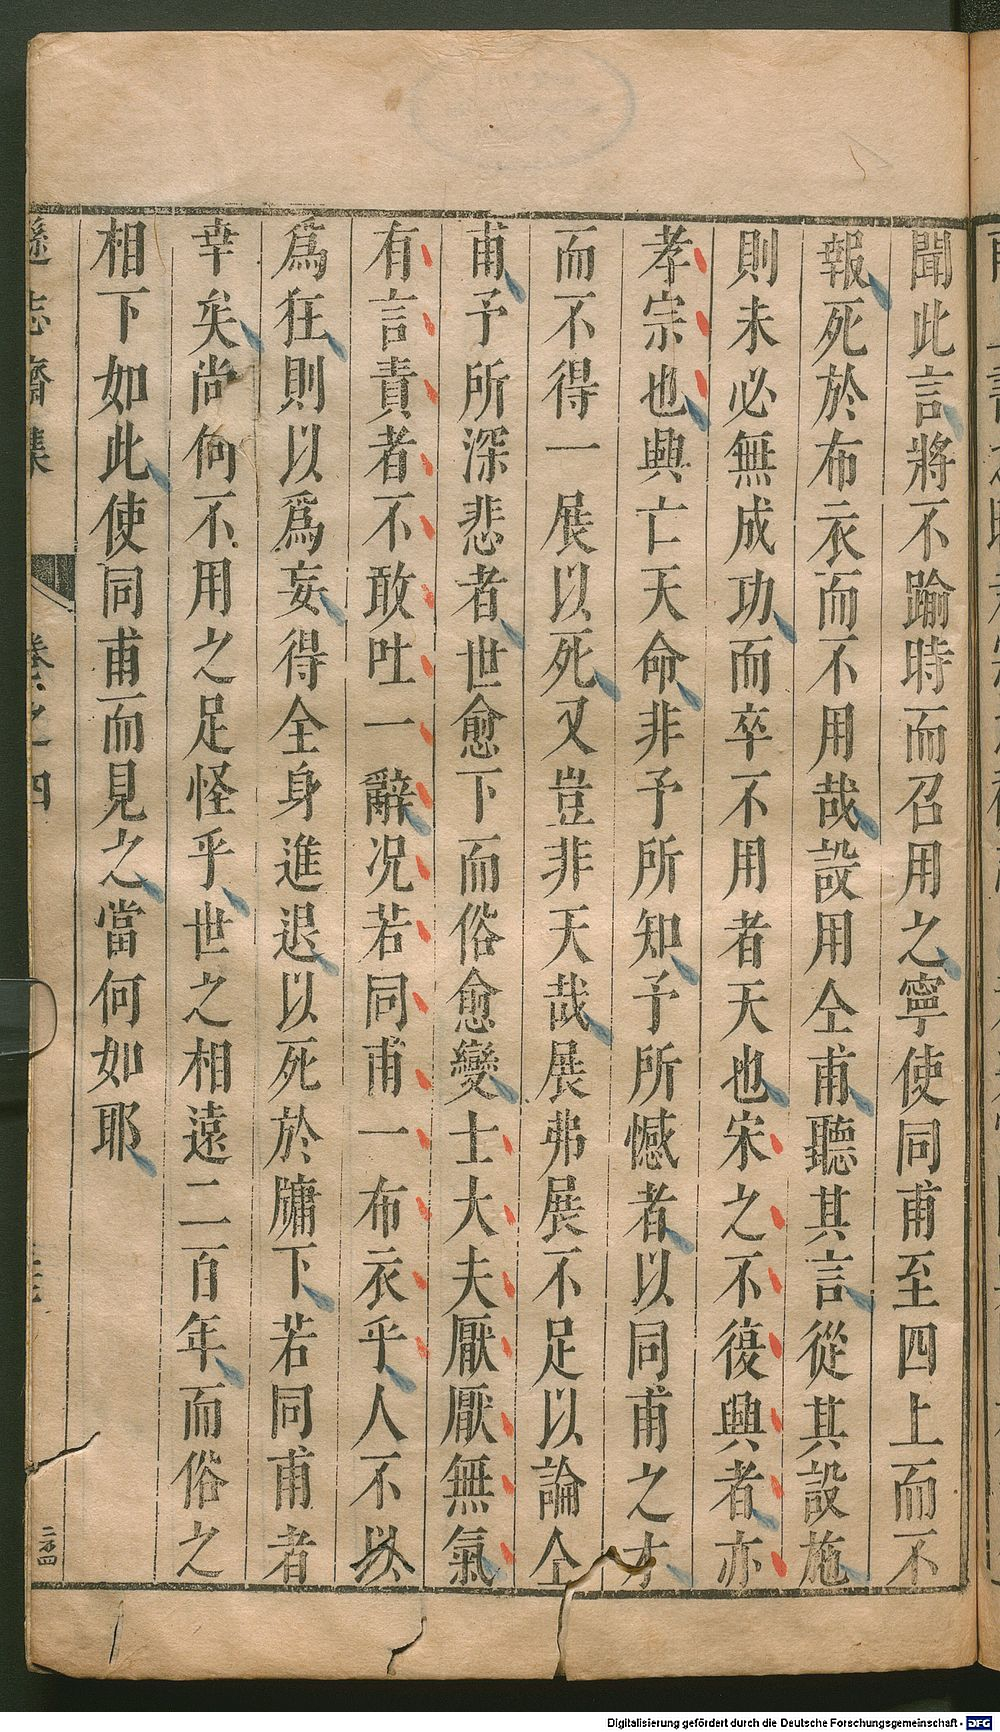 聞此言將不踰時而召用之寧使同甫至四上而不
報死於布衣而不用哉設用仝甫聽其言從其設施
則未必無成功而卒不用者天也宋之不復興者亦
孝宗也興亡天命非予所知予所憾者以同甫之才
而不得一展以死又豈非天哉展弗展不足以論仝
甫予所深悲者世愈下而俗愈變士大夫厭厭無氣
有言責者不敢吐一辭况若同甫一布衣乎人不以
爲狂則以爲妄得全身進退以死於牖下若同甫者
幸矣尚何不用之足怪乎世之相遠二百年而俗之
相下如此使同甫而見之當何如耶
遜志齋集 卷之四
Digitalisierung gefördert durch die Deutsche Forschungsgemeinschaft - DFG